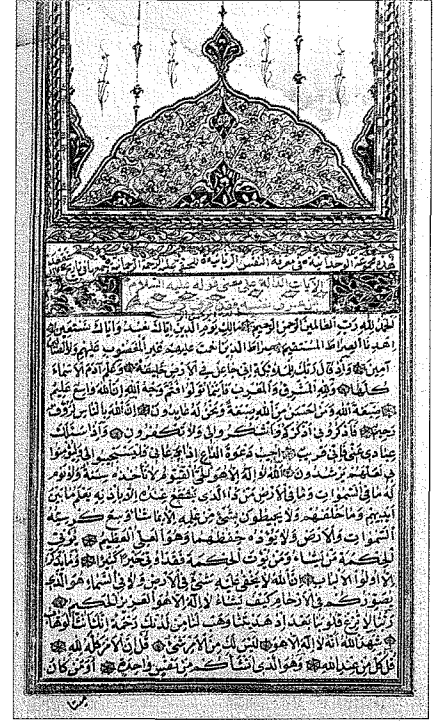 الآيات الدالة على معنى قوله عليه السلام
الحمد لله رب العالمين الرحمن الرحيم مالك يوم الدين اياك نعبد واياك نستعين
اهدنا الصراط المستقيم صراط الذين انعمت عليهم غير المغضوب عليهم ولا الضالين
آمين واذ قال ربك للملائكة انى جاعل فى الارض خليفة وعلم آدم الاسماء
كلها ولله المشرق والمغرب فاينما تولوا فثم وجه الله ان الله واسع عليم
صبغة الله ومن احسن من الله صبغة ونحن له عابدون ان الله بالناس لرؤف
رحيم فاذكرونى اذكركم واشكروا لى ولا تكفرون واذا سئلك
عبادى عنى فانى قريب اجيب دعوة الداع اذا دعان فليستجيبوا لى وليؤمنوا
بى لعلهم يرشدون الله لا اله الا هو الحى القيوم لا تأخذه سنة ولا نوم
له ما فى السموات وما فى الارض من ذا الذى يشفع عنده الا باذنه يعلم ما بين
ايديهم وما خلفهم ولا يحيطون بشئ من علمه الا بما شاء وسع كرسيه
السموات والارض ولا يؤده حفظهما وهو العلى العظيم يؤتى
الحكمة من يشاء ومن يؤت الحكمة فقد اوتى خيرا كثيرا وما يذكر
الا اولوا الالباب ان الله لا يخفى عليه شئ فى الارض ولا فى السماء هو الذى
يصوركم فى الارحام كيف يشاء لا اله الا هو العزيز الحكيم
ربنا لا تزغ قلوبنا بعد اذ هديتنا وهب لنا من لدنك رحمة انك انت الوهاب
شهد الله انه لا اله الا هو ليس لك من الامر شئ قل ان الامر كله لله
قل كل من عند الله وهو الذى انشأكم من نفس واحدة اومن كان